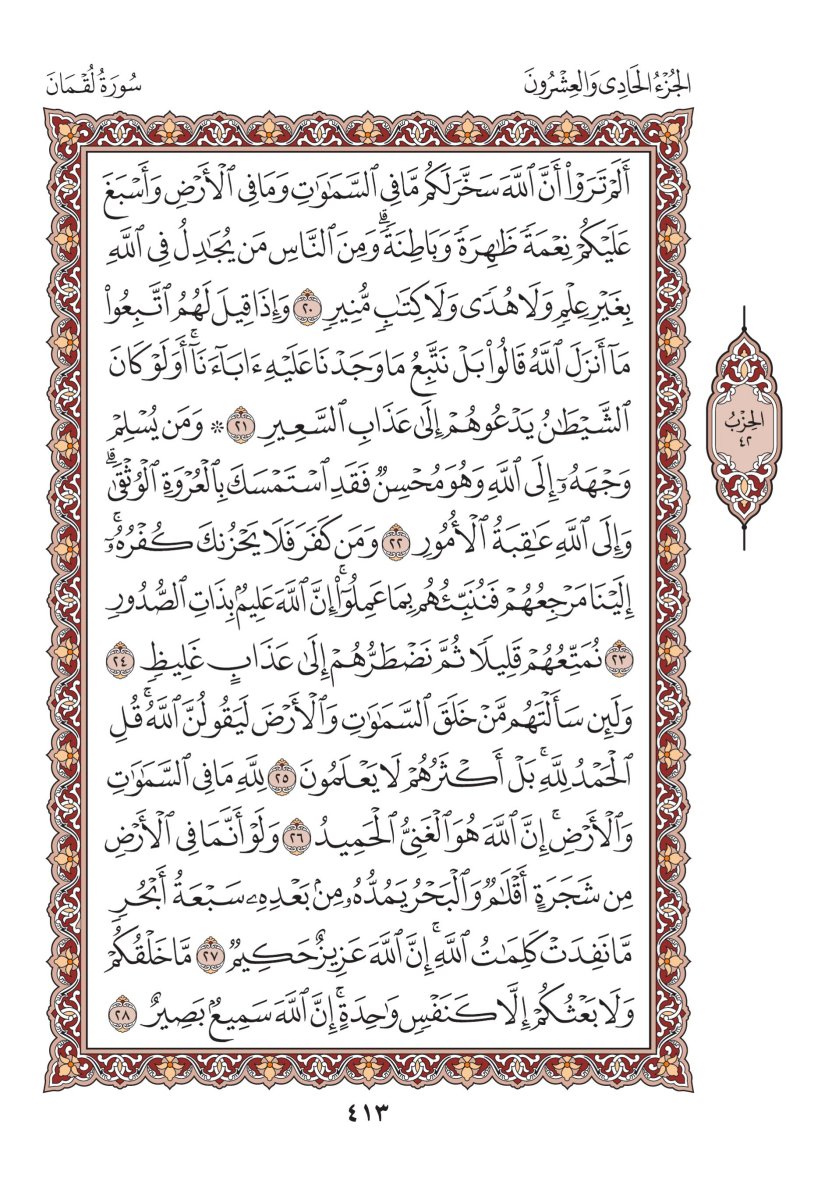 الجُزْءُ الحَادِى وَالعِشْرُونَ
سُورَةُ لُقْمَانَ
أَلَمْ تَرَوْا۟ أَنَّ ٱللَّهَ سَخَّرَ لَكُم مَّا فِى ٱلسَّمَٰوَٰتِ وَمَا فِى ٱلْأَرْضِ وَأَسْبَغَ
عَلَيْكُمْ نِعْمَهُۥ ظَٰهِرَةً وَبَاطِنَةً ۗ وَمِنَ ٱلنَّاسِ مَن يُجَٰدِلُ فِى ٱللَّهِ
بِغَيْرِ عِلْمٍ وَلَا هُدًى وَلَا كِتَٰبٍ مُّنِيرٍ ٢٠ وَإِذَا قِيلَ لَهُمُ ٱتَّبِعُوا۟
مَآ أَنزَلَ ٱللَّهُ قَالُوا۟ بَلْ نَتَّبِعُ مَا وَجَدْنَا عَلَيْهِ ءَابَآءَنَآ ۚ أَوَلَوْ كَانَ
ٱلشَّيْطَٰنُ يَدْعُوهُمْ إِلَىٰ عَذَابِ ٱلسَّعِيرِ ٢١ ۞ وَمَن يُسْلِمْ
وَجْهَهُۥٓ إِلَى ٱللَّهِ وَهُوَ مُحْسِنٌ فَقَدِ ٱسْتَمْسَكَ بِٱلْعُرْوَةِ ٱلْوُثْقَىٰ ۗ
وَإِلَى ٱللَّهِ عَٰقِبَةُ ٱلْأُمُورِ ٢٢ وَمَن كَفَرَ فَلَا يَحْزُنكَ كُفْرُهُۥٓ ۚ
إِلَيْنَا مَرْجِعُهُمْ فَنُنَبِّئُهُم بِمَا عَمِلُوٓا۟ ۚ إِنَّ ٱللَّهَ عَلِيمٌۢ بِذَاتِ ٱلصُّدُورِ
٢٣ نُمَتِّعُهُمْ قَلِيلًا ثُمَّ نَضْطَرُّهُمْ إِلَىٰ عَذَابٍ غَلِيظٍ ٢٤
وَلَئِن سَأَلْتَهُم مَّنْ خَلَقَ ٱلسَّمَٰوَٰتِ وَٱلْأَرْضَ لَيَقُولُنَّ ٱللَّهُ ۚ قُلِ
ٱلْحَمْدُ لِلَّهِ ۚ بَلْ أَكْثَرُهُمْ لَا يَعْلَمُونَ ٢٥ لِلَّهِ مَا فِى ٱلسَّمَٰوَٰتِ
وَٱلْأَرْضِ ۚ إِنَّ ٱللَّهَ هُوَ ٱلْغَنِىُّ ٱلْحَمِيدُ ٢٦ وَلَوْ أَنَّمَا فِى ٱلْأَرْضِ
مِن شَجَرَةٍ أَقْلَٰمٌ وَٱلْبَحْرُ يَمُدُّهُۥ مِنۢ بَعْدِهِۦ سَبْعَةُ أَبْحُرٍ
مَّا نَفِدَتْ كَلِمَٰتُ ٱللَّهِ ۗ إِنَّ ٱللَّهَ عَزِيزٌ حَكِيمٌ ٢٧ مَّا خَلْقُكُمْ
وَلَا بَعْثُكُمْ إِلَّا كَنَفْسٍ وَٰحِدَةٍ ۗ إِنَّ ٱللَّهَ سَمِيعٌۢ بَصِيرٌ ٢٨
الحِزْبُ
٤٢
٤١٣